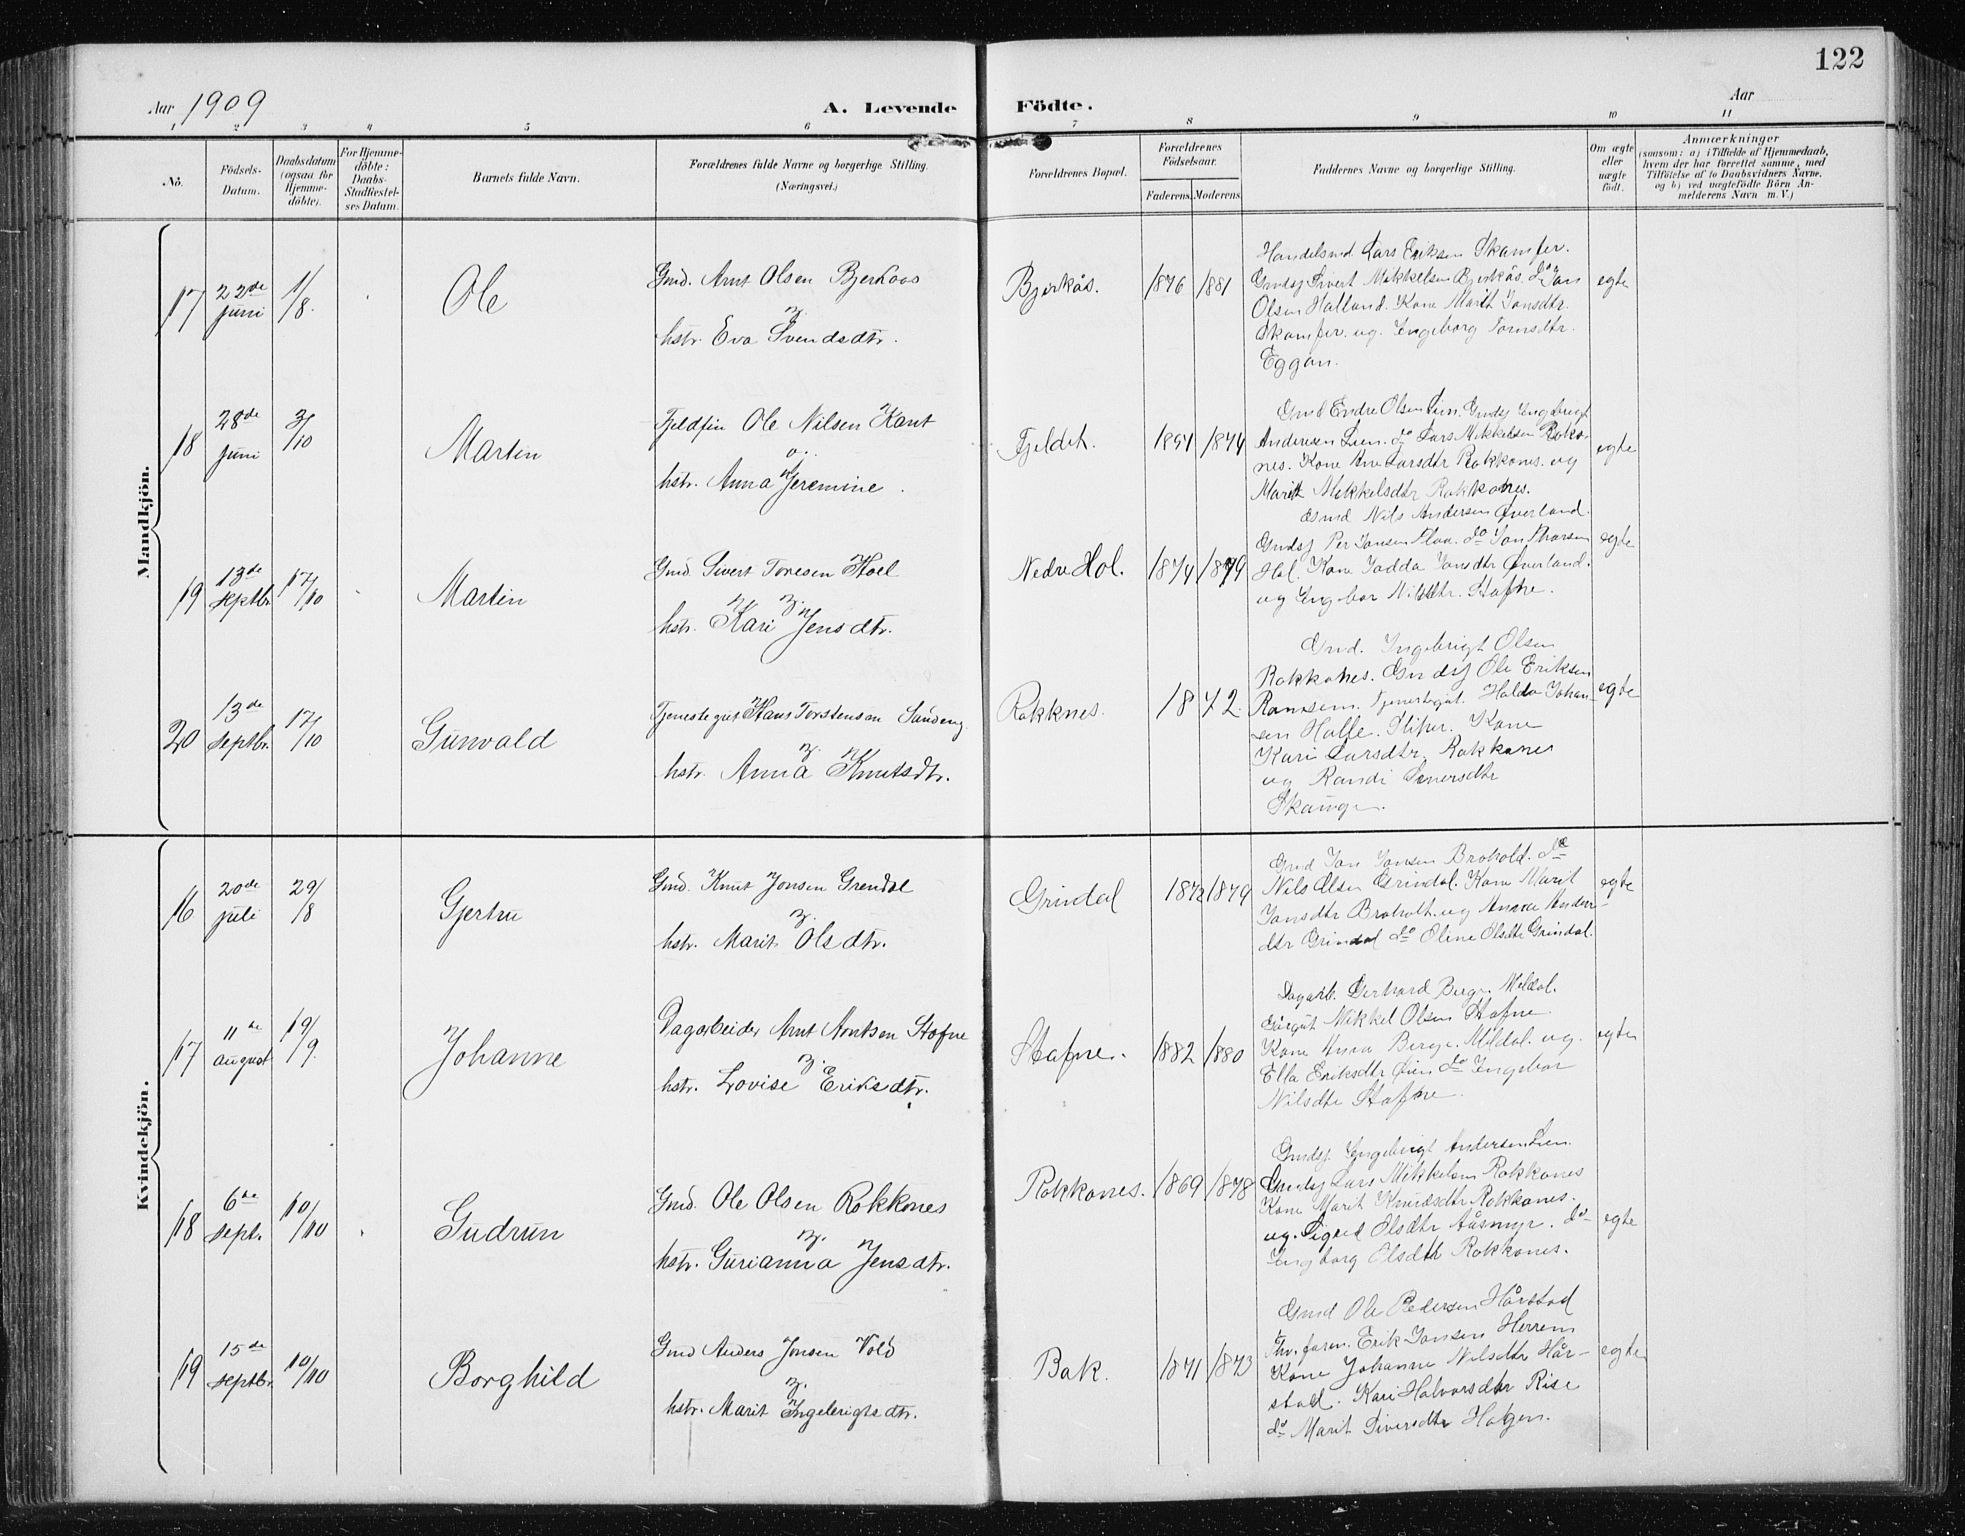 122
Aar 1909
A. Levende Födte.
Aar
1 2 3 4 5 6 7 8 9 10 11
No.
Födsels-
Datum.
Daabsdatum
(ogsaa for
Hjemme-
döbte).
For Hjemme-
döbte:
Daabs-
Stadfæstel-
ses Datum.
Barnets fulde Navn.
Forældrenes fulde Navne og borgerlige Stilling.
(Næringsvei.)
Forældrenes Bopæl.
Forældrenes
Födselsaar.
Faderens. Moderens.
Faddernes Navne og borgerlige Stilling.
Om ægte
eller
uægte
födt.
Anmærkninger
(saasom: a) i Tilfælde af Hjemmedaab,
hvem der har forrettet samme, med
Tilföielse af to Daabsvidners Navne,
og b) ved uægtefödte Börn An-
melderens Navn m. V.)
Mandkjön.
17
22de
juni
1/8.
Ole
Gmd. Arnt Olsen Bjerkaas
hstr. Eva Svendsdtr.
Bjerkås.
1876 1881
Handelsmd Lars Eriksen Skamfer.
Gmdsf Sivert Mikkelsen Bjerkås. do Jon
Olsen Halland. Kone Marit Jonsdtr.
Skamfer. og. Ingeborg Jonsdtr.
Eggan.
egte
18
28de
juni
3/10
Martin
Fjeldfin Ole Nilsen Kant
o.
hstr. Anna Jeremine.
Fjeldet.
1874
Gmd Endre Olsen Lien. Gmdsf Ingebrigt
Andersen Lien. do Lars Mikkelsen Rokko-
nes. Kone Ane Larsdtr Rokkones. og
Marit Mikkelsdtr Rokkones.
egte
19
13de
septbr.
17/10
Martin
Gmd. Sivert Toresen Hoel
hstr. Kari Jensdtr.
Nedre Hol.
1874 1879
Gmd Nils Andersen Øverland.
Gmdsf Per Jonsen Moa. do Jon Thorsen
Hol. Kone Jonsdtr Øverland.
og Ingebor Nilsdtr. Stafne.
egte
20
13de
septbr.
17/10
Gunvald
Tjenestegut Hans Torstensen Sandeng
hstr. Anna Knutsdtr.
Rokknes.
18 72.
Gmd. Ingebrigt Olsen
Rokkones. Gmdsf Ole Eriksen
Ramsem. Tjenestegut. Haldo Johan-
sen Halle. Kone
Kari Larsdtr. Rokkones
og Randi Siversdtr
Skauge.
egte
Kvindekjön.
16
20de
juli
29/8
Gjertru
Gmd. Knut Jonsen Grendal
hstr. Marit Olsdtr.
Grindal
1872 1879
Gmd Jon Jonsen Broholt. do
Nils Olsen Grindal. Kone Marit
Jonsdtr Broholt. og Anne Anders-
dtr Grindal do Oline Olsdtr Grindal.
egte
17
11te
august
19/9.
Johanne
Dagarbeider Arnt Arntsen Stafne
hstr. Lovise Eriksdtr.
Stafne.
1882 1880
Dagarb. Gerhard Berge. Meldal.
Mikkel Olsen Stafne.
Kone Anna Berge. Meldal. og.
Ella Eriksdtr Øien do Ingebor
Nilsdtr Stafne.
egte
18
6te
sept.
10/10
Gudrun
Gmd. Ole Olsen Rokkones
hstr. Gurianna Jensdtr.
Rokkones.
1869 1878
Gmdsf. Ingebrigt Andersen Lien.
Gmdsf Lars Mikkelsen Rokkones
Kone Marit Knudsdtr Rokkones.
og. Sigrid Olsdtr Aasmyr. do
Ingeborg Olsdtr Rokkones.
egte
19
15de
septbr.
10/10
Borghild
Gmd Anders Jonsen Vold
hstr. Marit Ingebrigtsdtr.
Bak.
1871 1873
Gmd Ole Pedersen Hårstad
Erik Jonsen Herrem
Kone Johanne Nilsdtr Hår-
stad. Kari Halvorsdtr Rise
do Marit Siversdtr Halgen.
egte